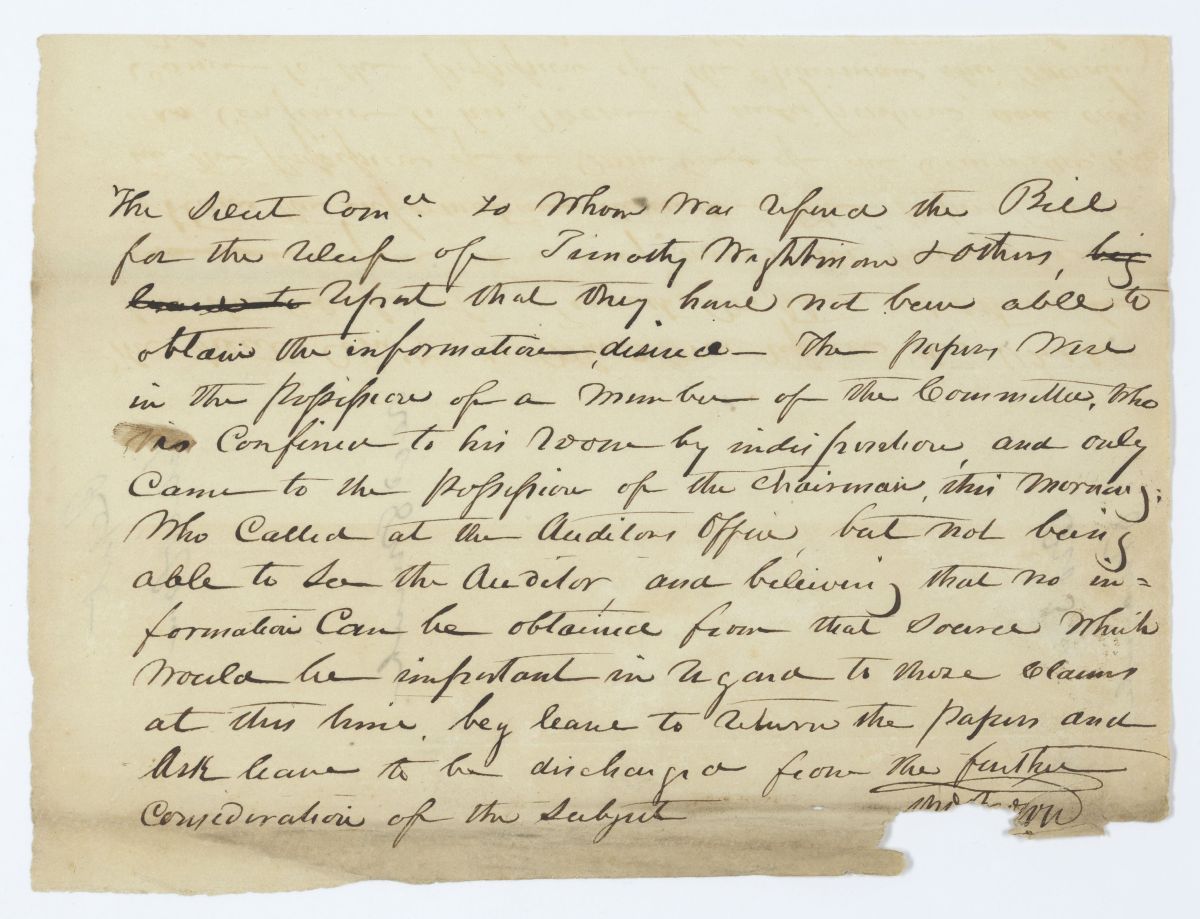 The Select Comee. to Whom was referred the Bill
for the relief of Timothy Wightman & others, beg
leave to report that they have not been able to
obtain the information desired — The papers were
in the possession of a Member of the Committee, who
is Confined to his room by indisposition, and only
Came to the possession of the Chairman, this morning;
Who Called at the Auditors Office, but not being
able to see the Auditor, and believing that no in=
formation Can be obtained from that source which
would be important in regard to those Claims
at this time, beg leave to return the papers and
Ask leave to be discharged from the further
Consideration of the Subject